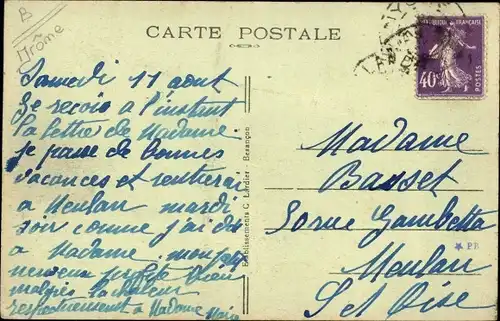 B
Drôme
CARTE POSTALE
RÉPUBLIQUE FRANÇAISE
40c
POSTES
Samedi 11 aout
Je reçois à l'instant
la lettre de Madame
je passe de bonnes
vacances et rentrerai
a Meulan mardi
soir comme j'ai dit
a Madame. mon
neveu profite bien
malgrés la chaleur
respectueusement a Madame Marie
Etablissements C. Lardier - Besançon
Madame
Basset
50 rue Gambetta
★ PB
Meulan
S et Oise